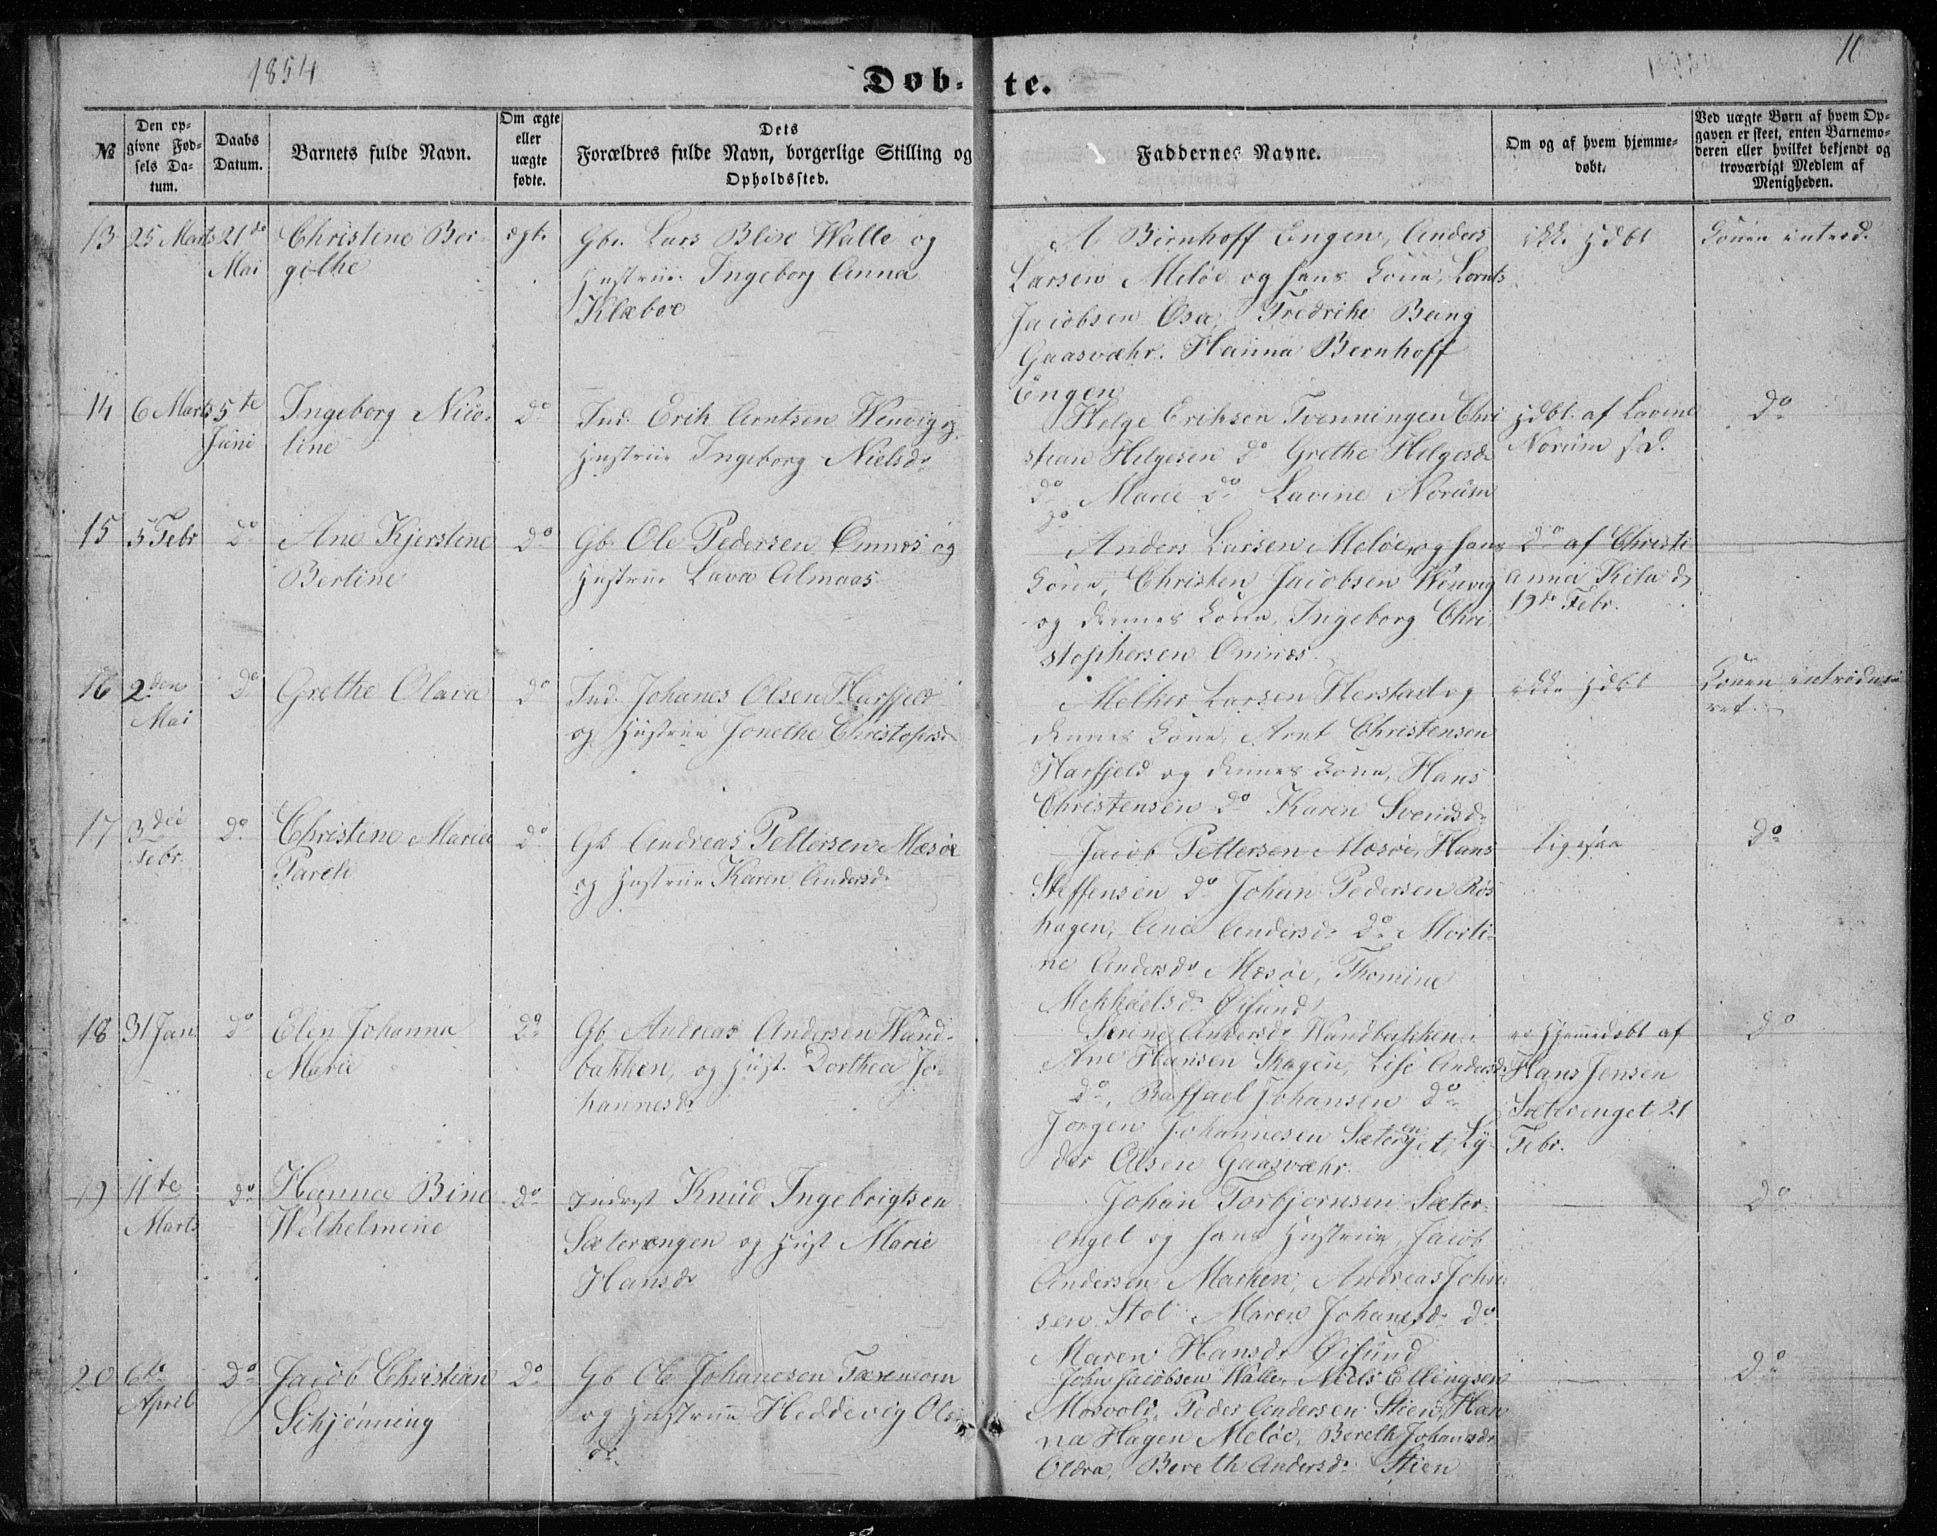 1854
10
Døb-te.
№
Den opgivne Fødsels Datum.
Daabs Datum.
Barnets fulde Navn.
Om ægte eller uægte fødte.
Dets Forældres fulde Navn, borgerlige Stilling og Opholdssted.
Faddernes Navne.
Om og af hvem hjemmedøbt.
Ved uægte Børn af hvem Opgaven er skeet, enten Barnemoderen eller hvilket bekjendt og troværdigt Medlem af Menigheden.
13
25 Marts
21de
Mai
Christine Ber-
githe
ægte
Gbr. Lars Blise Walle og
Hustrue Ingeborg Anna
Klæboe
A Birnhoff Engen, Anders
Larsen Meløe og hans Kone, Lornts
Jacobsen Osa, Fredrike Bang
Gaasvæhr. Hanna Bernhoff
Engen
ikke hdbt
Konen introd.
14
6 Marts
5te
Juni
Ingeborg Nico-
line
Do
Ind. Erik Arntsen Wenvig og
Hustrue Ingeborg Nielsdr
Helge Eriksen Tvenningen Chri
stian Helgesen do Grethe Helgesdr
do Marie do Lavine Norum
do
hdbt. af Lavine
Norum s.D.
Do
15
5 Febr
Do
Ane Kjerstine
Bertine
Do
Gb. Ole Pedersen Ømnes og
Hustrue Lava Almaas
Anders Larsen Meløe og hans
Kone, Christen Jacobsen Wenvig
og dennes Kone, Ingeborg Chri
stophersen Ømnes
do af Christi
anna Kila d
19de Febr.
16
2den
Mai
Do
Grethe Olava
Do
Ind. Johanes Olsen Harfjeld
og Hustrue Jonethe Christophsdr
Melker Larsen Herstad og
dennes Kone, Arnt Christensen
Harfjeld og dennes Kone, Hans
Christensen do Karen Svendsdr
ikke hdbt
Konen introdus-
ret
17
3die
Febr.
Do
Christine Maria
Pareli
Do
Gb Andreas Pettersen Mæsøe
og Hustrue Karen Andersdr
Jacob Pettersen Mosøe, Hans
Steffensen do Johan Pedersen Røs
hagen, Ane Andersdr do Morti-
ne Andersdr Mæsøe, Thomine
Mekkaelsdr Øisund
Ligesaa
Do
18
31 Jan
Do
Elen Johanna
Marie
Do
Gb. Andreas Andersen Wand-
bakken, og Hust. Dorthea Jo-
hannesdr
Serine Andersdr Wandbakken
Ane Hansen Skagen, Lise Andersdr
do, Raffael Johansen do
Jørgen Johannesen Sæterenget, Ly-
der Olsen Gaasvæhr
er Hjemmedøbt af
Hans Jensen
Sæterenget 21
Febr.
Do
19
11te
Marts
Do
Hanna Bine
Wilhelmine
Do
Inderst Knud Ingebrigtsen
Sæterængen og Hust Marie
Hansdr
Johan Torbjørnsen Sæter-
enget og hans Hustrue, Jacob
Andersen Marken, Andreas Johan
sen Stot Maren Johansdr do
Maren Hansdr Øisund
Do
20
6te
April
Do
Jacob Christian
Schjønning
Do
Gb Ole Johanesen
og Hustrue Heddevig Ols
dr
John Jacobsen Walle, Niels Ellingsen
Mosvold, Peder Andersen Stien, Han
na Hagen Meløe, Bereth Johansdr
Oldra, Bereth Andersdr Stien
Do